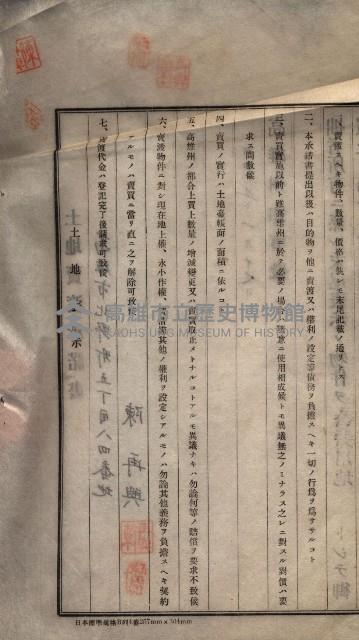 一、賣渡スヘキ物件ノ數量、價格ハ供シモ末尾記載ノ通リトス
二、本承諾書提出以後ハ目的物ヲ他ニ賣渡又ハ權利ノ設定等債務ヲ負擔スヘキ一切ノ行爲ヲ爲ササルコト
三、賣買實施以前ト雖高雄州ニ於テ必要ノ場合ハ無意ニ使用相成候トモ異議無之ノミナラス之レニ對スル對價ハ要
求ス間敷候
四、賣買ノ實行ハ土地臺帳面ノ面積ニ依ルコト
五、高雄州ノ都合上買上數量ノ增減變更又ハ賣買取止メトナルコトアルモ異議ナキハ勿論何等ノ賠償ヲ要求不致候
六、賣渡物件ニ對シ現在地上權、永小作權、其他ノ權利ヲ設定シアルモノハ勿論其他義務ヲ負擔スヘキ契約
アルモノハ賣買ニ當リ直ニ之ヲ解除可致候
七、賣渡代金ハ登記完了後請求可致候
土地表示
五丁目八四番地
陳再興
高雄市立歷史博物館
KAOHSIUNG MUSEUM OF HISTORY
日本標準規格B列4番257mm×364mm